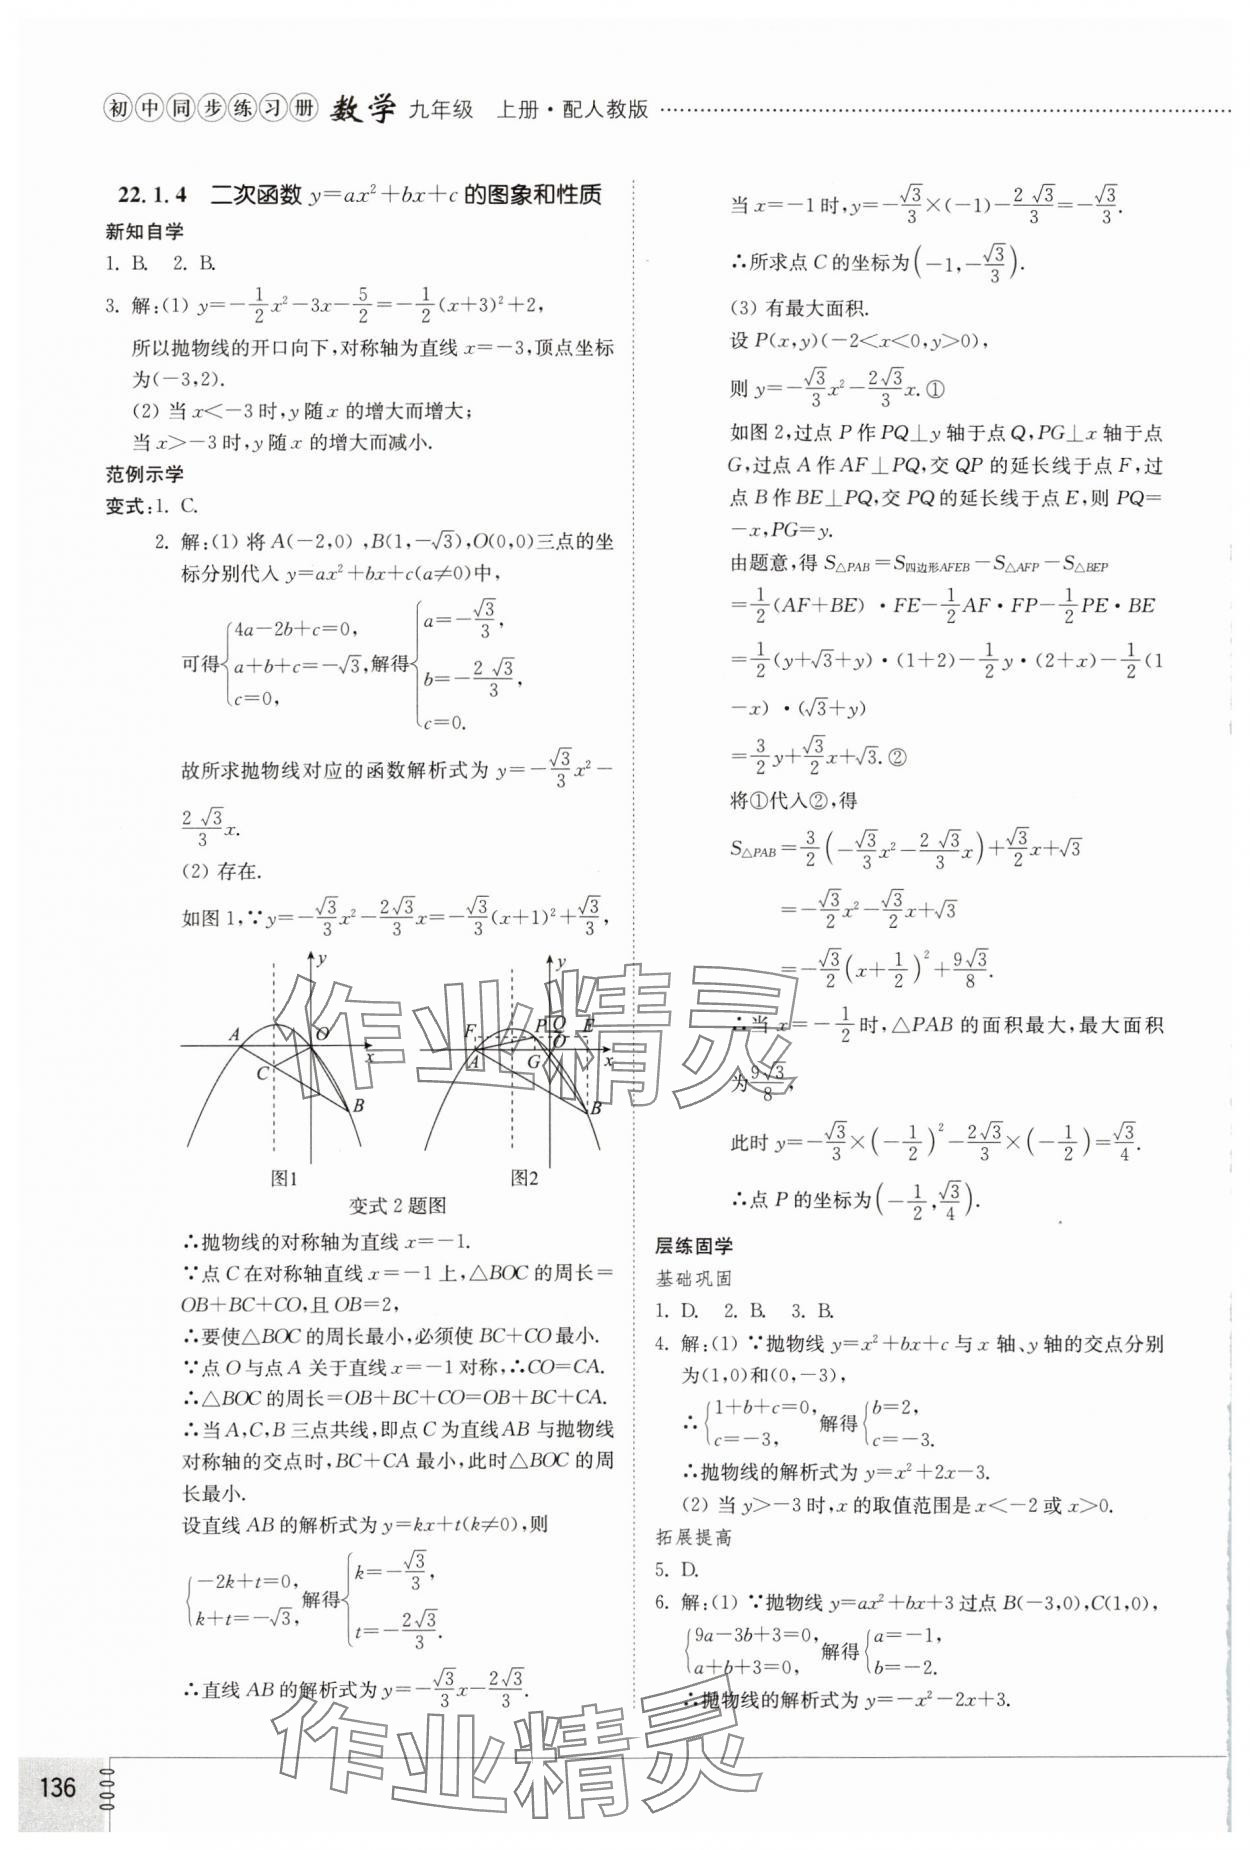 初中同步练习册 数学 九年级 上册·配人教版
22.1.4 二次函数 y=ax²+bx+c 的图象和性质
新知自学
1. B. 2. B.
3. 解:(1) y=-1/2x²-3x-5/2=-1/2(x+3)²+2,
所以抛物线的开口向下,对称轴为直线 x=-3,顶点坐标
为(-3,2).
(2) 当 x<-3 时,y 随 x 的增大而增大;
当 x>-3 时,y 随 x 的增大而减小.
范例示学
变式:1. C.
2. 解:(1) 将 A(-2,0) ,B(1,-√3),O(0,0)三点的坐
标分别代入 y=ax²+bx+c(a≠0)中,
可得{4a-2b+c=0, a+b+c=-√3, c=0, 解得{a=-√3/3, b=-2√3/3, c=0.
故所求抛物线对应的函数解析式为 y=-√3/3x²-
2√3/3x.
(2) 存在.
如图 1,∵y=-√3/3x²-2√3/3x=-√3/3(x+1)²+√3/3,
y A O x C B
图1
y F P Q E A G O x B
图2
变式 2 题图
∴抛物线的对称轴为直线 x=-1.
∵点 C 在对称轴直线 x=-1 上,△BOC 的周长=
OB+BC+CO,且 OB=2,
∴要使△BOC 的周长最小,必须使 BC+CO 最小.
∵点 O 与点 A 关于直线 x=-1 对称,∴CO=CA.
∴△BOC 的周长=OB+BC+CO=OB+BC+CA.
∴当 A,C,B 三点共线,即点 C 为直线 AB 与抛物线
对称轴的交点时,BC+CA 最小,此时△BOC 的周
长最小.
设直线 AB 的解析式为 y=kx+t(k≠0),则
{-2k+t=0, k+t=-√3, 解得{k=-√3/3, t=-2√3/3.
∴直线 AB 的解析式为 y=-√3/3x-2√3/3.
当 x=-1 时,y=-√3/3×(-1)-2√3/3=-√3/3.
∴所求点 C 的坐标为(-1,-√3/3).
(3) 有最大面积.
设 P(x,y)(-2<x<0,y>0),
则 y=-√3/3x²-2√3/3x.①
如图 2,过点 P 作 PQ⊥y 轴于点 Q,PG⊥x 轴于点
G,过点 A 作 AF⊥PQ,交 QP 的延长线于点 F,过
点 B 作 BE⊥PQ,交 PQ 的延长线于点 E,则 PQ=
-x,PG=y.
由题意,得 S△PAB=S四边形AFEB-S△AFP-S△BEP
=1/2(AF+BE)·FE-1/2AF·FP-1/2PE·BE
=1/2(y+√3+y)·(1+2)-1/2y·(2+x)-1/2(1
-x)·(√3+y)
=3/2y+√3/2x+√3.②
将①代入②,得
S△PAB=3/2(-√3/3x²-2√3/3x)+√3/2x+√3
=-√3/2x²-√3/2x+√3
=-√3/2(x+1/2)²+9√3/8.
∴当 x=-1/2时,△PAB 的面积最大,最大面积
为9√3/8,
此时 y=-√3/3×(-1/2)²-2√3/3×(-1/2)=√3/4.
∴点 P 的坐标为(-1/2,√3/4).
层练固学
基础巩固
1. D. 2. B. 3. B.
4. 解:(1) ∵抛物线 y=x²+bx+c 与 x 轴、y 轴的交点分别
为(1,0)和(0,-3),
∴{1+b+c=0, c=-3, 解得{b=2, c=-3.
∴抛物线的解析式为 y=x²+2x-3.
(2) 当 y>-3 时,x 的取值范围是 x<-2 或 x>0.
拓展提高
5. D.
6. 解:(1) ∵抛物线 y=ax²+bx+3 过点 B(-3,0),C(1,0),
{9a-3b+3=0, a+b+3=0, 解得{a=-1, b=-2.
∴抛物线的解析式为 y=-x²-2x+3.
136
作业精灵
作业精灵